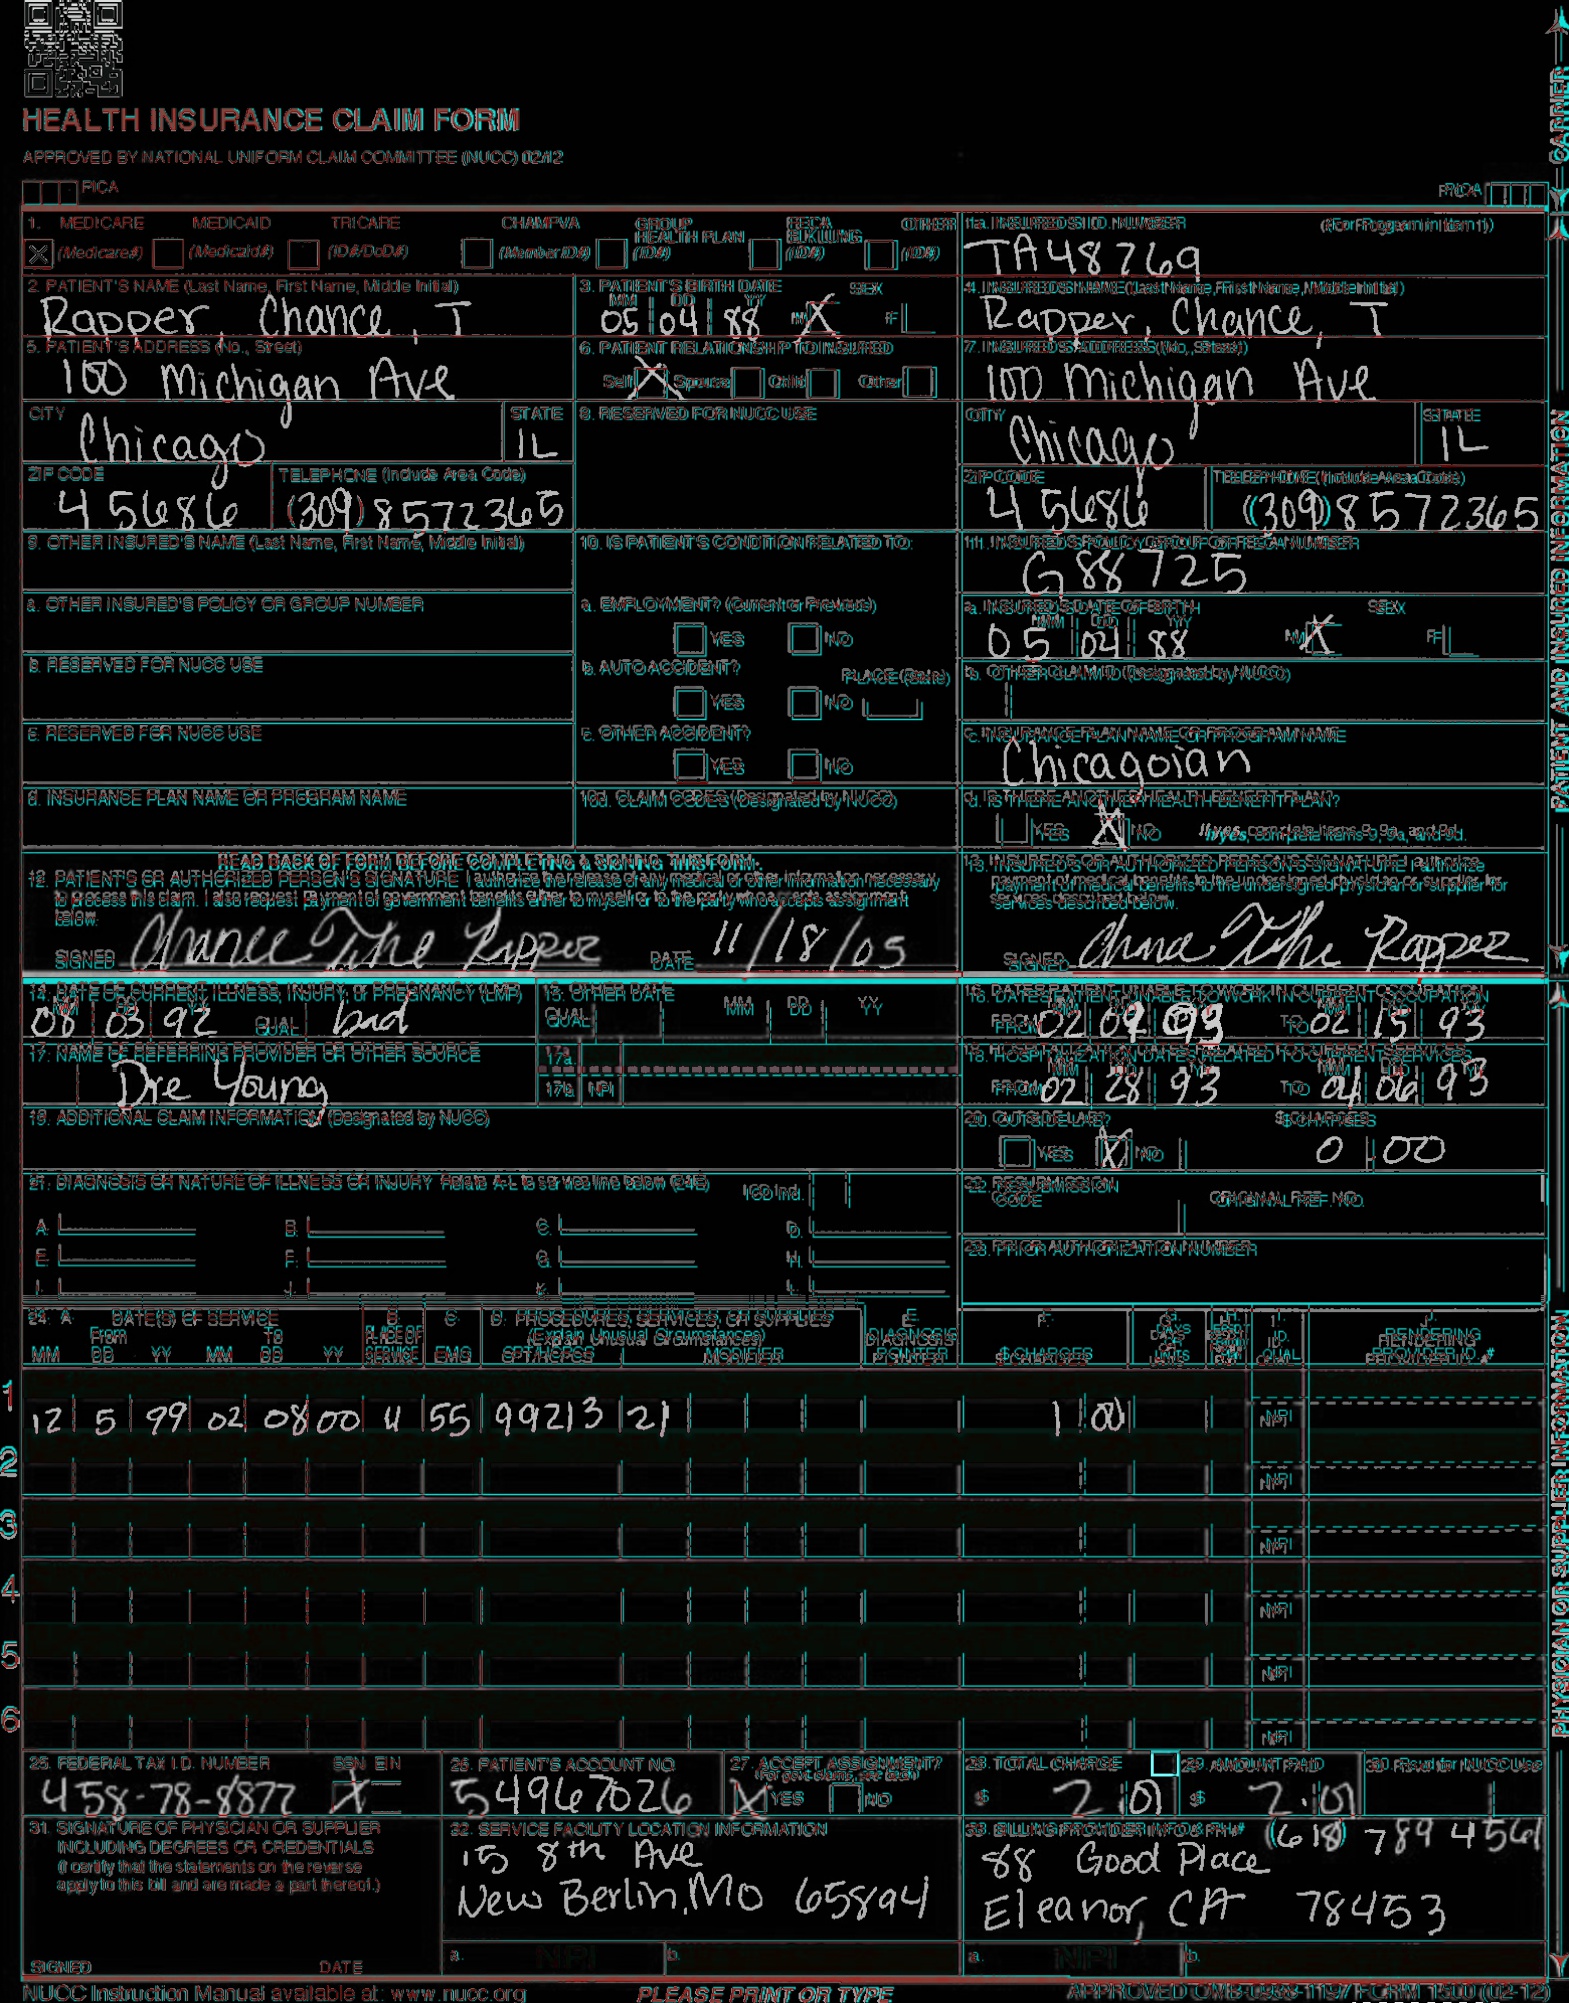 HEALTH INSURANCE CLAIM FORM
APPROVED BY NATIONAL UNIFORM CLAIM COMMITTEE (NUCC) 02/12
PICA
PICA
CARRIER
1. MEDICARE MEDICAID TRICARE CHAMPVA GROUP HEALTH PLAN FECA BLK LUNG OTHER
X (Medicare#) (Medicaid#) (ID#/DoD#) (Member ID#) (ID#) (ID#) (ID#)
1a. INSURED'S I.D. NUMBER (For Program in Item 1)
TA48769
2. PATIENT'S NAME (Last Name, First Name, Middle Initial)
Rapper, Chance, T
3. PATIENT'S BIRTH DATE SEX
MM DD YY
05 04 88 M X F
4. INSURED'S NAME (Last Name, First Name, Middle Initial)
Rapper, Chance, T
5. PATIENT'S ADDRESS (No., Street)
100 Michigan Ave
6. PATIENT RELATIONSHIP TO INSURED
Self X Spouse Child Other
7. INSURED'S ADDRESS (No., Street)
100 Michigan Ave
CITY STATE
Chicago IL
8. RESERVED FOR NUCC USE
CITY STATE
Chicago IL
ZIP CODE TELEPHONE (Include Area Code)
45686 (309) 8572365
ZIP CODE TELEPHONE (Include Area Code)
45686 (309) 8572365
9. OTHER INSURED'S NAME (Last Name, First Name, Middle Initial)
10. IS PATIENT'S CONDITION RELATED TO:
11. INSURED'S POLICY GROUP OR FECA NUMBER
G88725
a. OTHER INSURED'S POLICY OR GROUP NUMBER
a. EMPLOYMENT? (Current or Previous)
YES NO
a. INSURED'S DATE OF BIRTH SEX
MM DD YY
05 04 88 M X F
b. RESERVED FOR NUCC USE
b. AUTO ACCIDENT? PLACE (State)
YES NO
b. OTHER CLAIM ID (Designated by NUCC)
c. RESERVED FOR NUCC USE
c. OTHER ACCIDENT?
YES NO
c. INSURANCE PLAN NAME OR PROGRAM NAME
Chicagoian
d. INSURANCE PLAN NAME OR PROGRAM NAME
10d. CLAIM CODES (Designated by NUCC)
d. IS THERE ANOTHER HEALTH BENEFIT PLAN?
YES X NO If yes, complete items 9, 9a, and 9d.
PATIENT AND INSURED INFORMATION
READ BACK OF FORM BEFORE COMPLETING & SIGNING THIS FORM.
12. PATIENT'S OR AUTHORIZED PERSON'S SIGNATURE I authorize the release of any medical or other information necessary
to process this claim. I also request payment of government benefits either to myself or to the party who accepts assignment
below.
SIGNED Chance The Rapper DATE 11/18/05
13. INSURED'S OR AUTHORIZED PERSON'S SIGNATURE I authorize
payment of medical benefits to the undersigned physician or supplier for
services described below.
SIGNED Chance The Rapper
14. DATE OF CURRENT ILLNESS, INJURY, or PREGNANCY (LMP)
MM DD YY
08 03 92 QUAL. bad
15. OTHER DATE
QUAL. MM DD YY
16. DATES PATIENT UNABLE TO WORK IN CURRENT OCCUPATION
MM DD YY MM DD YY
FROM 02 09 93 TO 02 15 93
17. NAME OF REFERRING PROVIDER OR OTHER SOURCE
Dre Young
17a.
17b. NPI
18. HOSPITALIZATION DATES RELATED TO CURRENT SERVICES
MM DD YY MM DD YY
FROM 02 28 93 TO 04 06 93
19. ADDITIONAL CLAIM INFORMATION (Designated by NUCC)
20. OUTSIDE LAB? $ CHARGES
YES X NO 0 00
21. DIAGNOSIS OR NATURE OF ILLNESS OR INJURY Relate A-L to service line below (24E) ICD Ind.
A. B. C. D.
E. F. G. H.
I. J. K. L.
22. RESUBMISSION CODE ORIGINAL REF. NO.
23. PRIOR AUTHORIZATION NUMBER
24. A. DATE(S) OF SERVICE B. C. D. PROCEDURES, SERVICES, OR SUPPLIES E. F. G. H. I. J.
From To PLACE OF SERVICE EMG (Explain Unusual Circumstances) DIAGNOSIS POINTER $ CHARGES DAYS OR UNITS ID. QUAL. RENDERING PROVIDER ID. #
MM DD YY MM DD YY CPT/HCPCS MODIFIER
1 12 5 99 02 08 00 4 55 99213 21 1 00 NPI
2 NPI
3 NPI
4 NPI
5 NPI
6 NPI
PHYSICIAN OR SUPPLIER INFORMATION
25. FEDERAL TAX I.D. NUMBER SSN EIN
458-78-8877 X
26. PATIENT'S ACCOUNT NO.
54967026
27. ACCEPT ASSIGNMENT?
(For govt. claims, see back)
X YES NO
28. TOTAL CHARGE
$ 2 01
29. AMOUNT PAID
$ 2.01
30. Rsvd for NUCC Use
31. SIGNATURE OF PHYSICIAN OR SUPPLIER
INCLUDING DEGREES OR CREDENTIALS
(I certify that the statements on the reverse
apply to this bill and are made a part thereof.)
SIGNED DATE
32. SERVICE FACILITY LOCATION INFORMATION
15 8th Ave
New Berlin, Mo 65894
a. NPI b.
33. BILLING PROVIDER INFO & PH# (618) 789 4561
88 Good Place
Eleanor, CA 78453
a. NPI b.
NUCC Instruction Manual available at: www.nucc.org
PLEASE PRINT OR TYPE
APPROVED OMB-0938-1197 FORM 1500 (02-12)